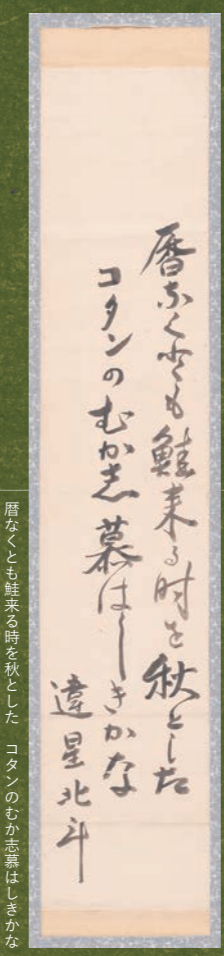 暦なくとも鮭来る時を秋とした
コタンのむか志慕はしきかな
違星北斗
暦なくとも鮭来る時を秋とした　コタンのむか志慕はしきかな